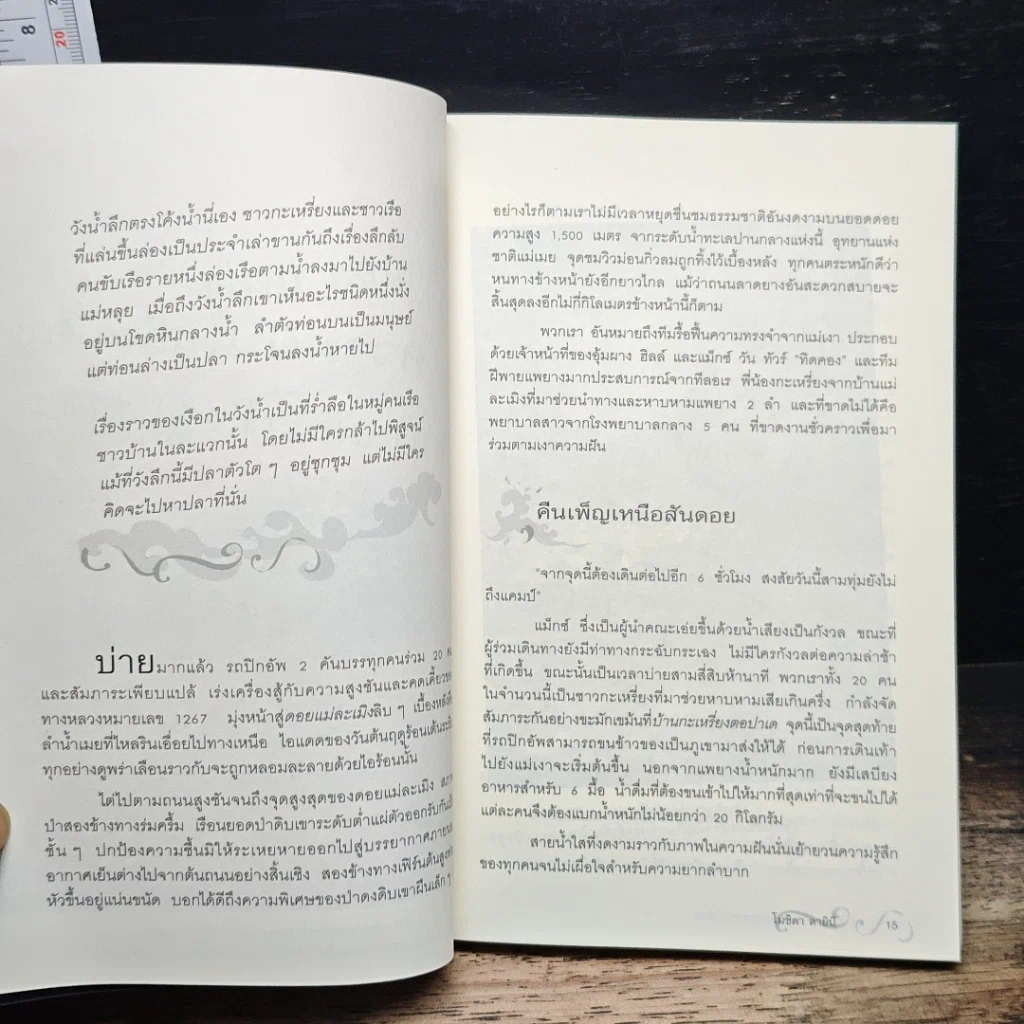 8
20
วังน้ำลึกตรงโค้งน้ำนี่เอง ชาวกะเหรี่ยงและชาวเรือ
ที่แล่นขึ้นล่องเป็นประจำเล่าขานกันถึงเรื่องลึกลับ
คนขับเรือรายหนึ่งล่องเรือตามน้ำลงมาไปยังบ้าน
แม่หลุย เมื่อถึงวังน้ำลึกเขาเห็นอะไรชนิดหนึ่งนั่ง
อยู่บนโขดหินกลางน้ำ ลำตัวท่อนบนเป็นมนุษย์
แต่ท่อนล่างเป็นปลา กระโจนลงน้ำหายไป
เรื่องราวของเงือกในวังน้ำเป็นที่ร่ำลือในหมู่คนเรือ
ชาวบ้านในละแวกนั้น โดยไม่มีใครกล้าไปพิสูจน์
แม้ที่วังลึกนี้มีปลาตัวโต ๆ อยู่ชุกชุม แต่ไม่มีใคร
คิดจะไปหาปลาที่นั่น
บ่ายมากแล้ว รถปิกอัพ 2 คันบรรทุกคนร่วม 20
และสัมภาระเพียบแปล้ เร่งเครื่องสู้กับความสูงชันและคดเคี้ยว
ทางหลวงหมายเลข 1267 มุ่งหน้าสู่ดอยแม่ละเมิงลิบ ๆ เบื้องหลัง
ลำน้ำเมยที่ไหลรินเอื่อยไปทางเหนือ ไอแดดของวันต้นฤดูร้อนเต้น
ทุกอย่างดูพร่าเลือนราวกับจะถูกหลอมละลายด้วยไอร้อนนั้น
ไต่ไปตามถนนสูงชันจนถึงจุดสูงสุดของดอยแม่ละเมิง
ป่าสองข้างทางร่มครึ้ม เรือนยอดป่าดิบเขาระดับต่ำแผ่ตัวออกรับกัน
ชั้น ๆ ปกป้องความชื้นมิให้ระเหยหายออกไปสู่บรรยากาศ
อากาศเย็นต่างไปจากต้นถนนอย่างสิ้นเชิง สองข้างทางเฟิร์นต้น
หัวขึ้นอยู่แน่นขนัด บอกได้ดีถึงความพิเศษของป่าดงดิบเขาผืนเล็ก ๆ
อย่างไรก็ตามเราไม่มีเวลาหยุดชื่นชมธรรมชาติอันงดงามบนยอดดอย
ความสูง 1,500 เมตร จากระดับน้ำทะเลปานกลางแห่งนี้ อุทยานแห่ง
ชาติแม่เมย จุดชมวิวม่อนกิ่วลมถูกทิ้งไว้เบื้องหลัง ทุกคนตระหนักดีว่า
หนทางข้างหน้ายังอีกยาวไกล แม้ว่าถนนลาดยางอันสะดวกสบายจะ
สิ้นสุดลงอีกไม่กี่กิโลเมตรข้างหน้านี้ก็ตาม
พวกเรา อันหมายถึงทีมรื้อฟื้นความทรงจำจากแม่เงา ประกอบ
ด้วยเจ้าหน้าที่ของอุ้มผาง ฮิลล์ และแม็กซ์ วัน ทัวร์ "ทิดคอง" และทีม
ฝีพายแพยางมากประสบการณ์จากทีลอเร พี่น้องกะเหรี่ยงจากบ้านแม่
ละเมิงที่มาช่วยนำทางและหาบหามแพยาง 2 ลำ และที่ขาดไม่ได้คือ
พยาบาลสาวจากโรงพยาบาลกลาง 5 คน ที่ขาดงานชั่วคราวเพื่อมา
ร่วมตามเงาความฝัน
คืนเพ็ญเหนือสันดอย
"จากจุดนี้ต้องเดินต่อไปอีก 6 ชั่วโมง สงสัยวันนี้สามทุ่มยังไม่
ถึงแคมป์"
แม็กซ์ ซึ่งเป็นผู้นำคณะเอ่ยขึ้นด้วยน้ำเสียงเป็นกังวล ขณะที่
ผู้ร่วมเดินทางยังมีท่าทางกระฉับกระเฉง ไม่มีใครกังวลต่อความล่าช้า
ที่เกิดขึ้น ขณะนั้นเป็นเวลาบ่ายสามสี่สิบห้านาที พวกเราทั้ง 20 คน
ในจำนวนนี้เป็นชาวกะเหรี่ยงที่มาช่วยหาบหามเสียเกินครึ่ง กำลังจัด
สัมภาระกันอย่างขะมักเขม้นที่บ้านกะเหรี่ยงตอปาเด จุดนี้เป็นจุดสุดท้าย
ที่รถปิกอัพสามารถขนข้าวของเป็นภูเขามาส่งให้ได้ ก่อนการเดินเท้า
ไปยังแม่เงาจะเริ่มต้นขึ้น นอกจากแพยางน้ำหนักมาก ยังมีเสบียง
อาหารสำหรับ 6 มื้อ น้ำดื่มที่ต้องขนเข้าไปให้มากที่สุดเท่าที่จะขนไปได้
แต่ละคนจึงต้องแบกน้ำหนักไม่น้อยกว่า 20 กิโลกรัม
สายน้ำใสที่งดงามราวกับภาพในความฝันนั่นเย้ายวนความรู้สึก
ของทุกคนจนไม่เผื่อใจสำหรับความยากลำบาก
15